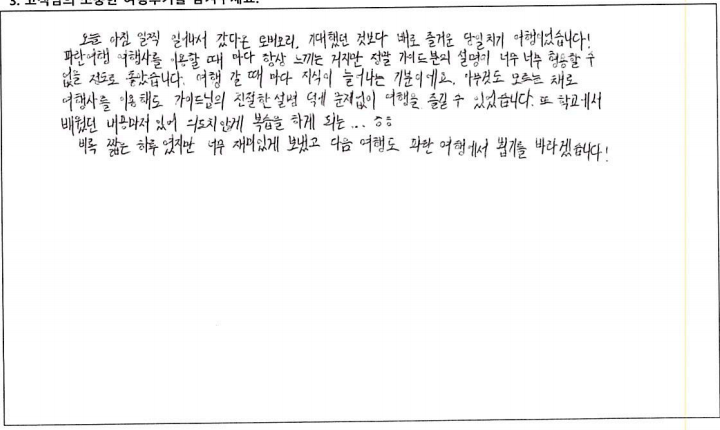 3. 고객님의 소중한 여행후기를 남겨주세요.
오늘 아침 일찍 일어나서 갔다온 모비오리, 기대했던 것보다 배로 즐거운 당일치기 여행이었습니다!
파란여행 여행사를 이용할 때 마다 항상 느끼는 거지만 정말 가이드분의 설명이 너무 너무 형용할 수
없을 정도로 좋았습니다. 여행 갈 때 마다 지식이 늘어나는 기분이에요. 아무것도 모르는 채로
여행사를 이용해도 가이드님의 친절한 설명 덕에 문제없이 여행을 즐길 수 있었습니다. 또 학교에서
배웠던 내용마저 있어 의도치 않게 복습을 하게 되는...
비록 짧은 하루였지만 너무 재미있게 보냈고 다음 여행도 파란 여행에서 뵙기를 바라겠습니다!